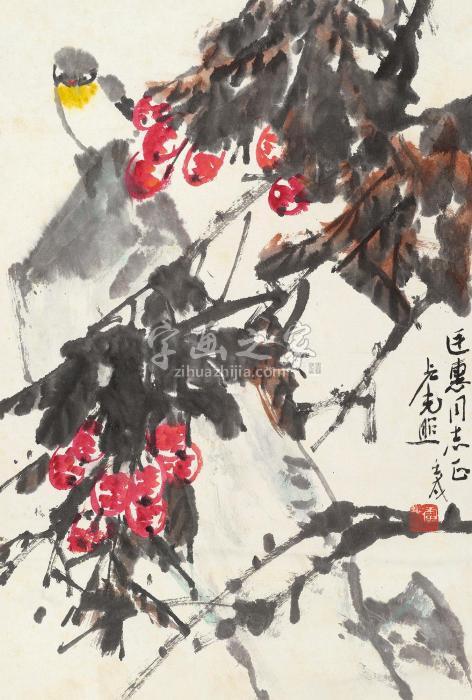 廷惠同志正
卢光照
壬戌
字画之家
zihuazhijia.com